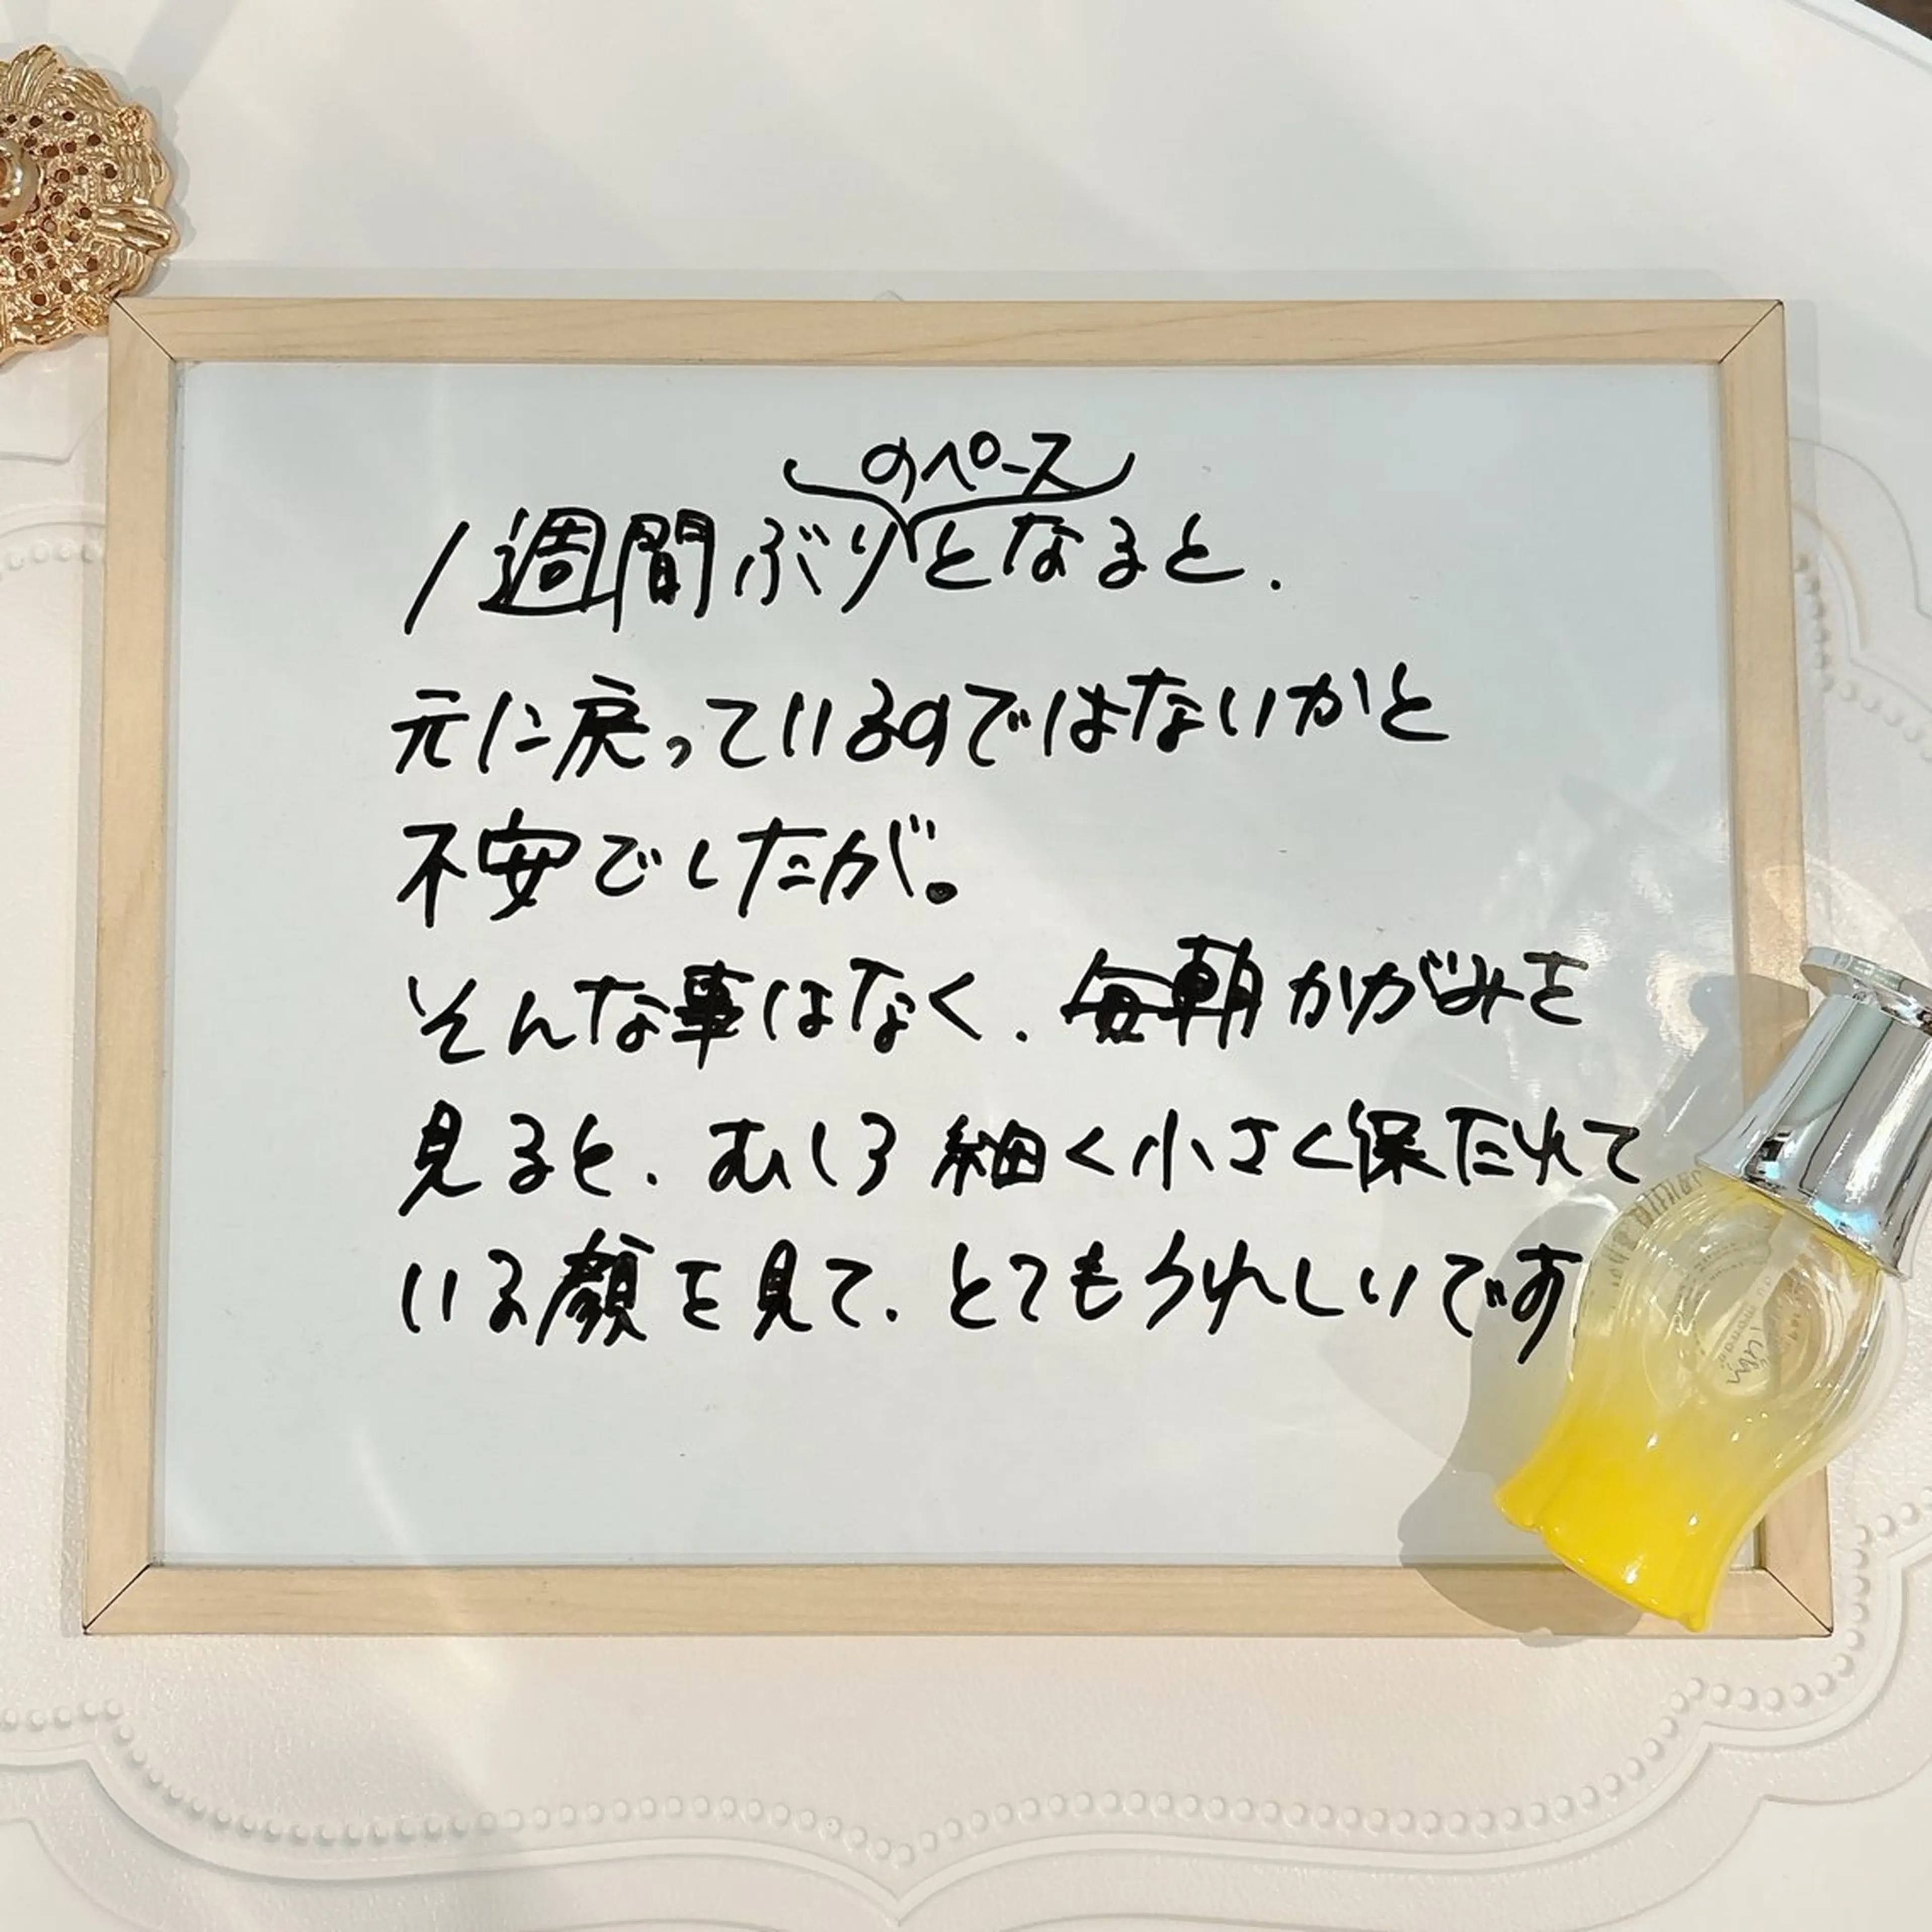 のペース
1週間ぶりとなると.
元に戻っているのではないかと
不安でしたが。
そんな事はなく. 毎朝かがみを
見ると. むしろ細く小さく保たれて
いる顔を見て. とてもうれしいです